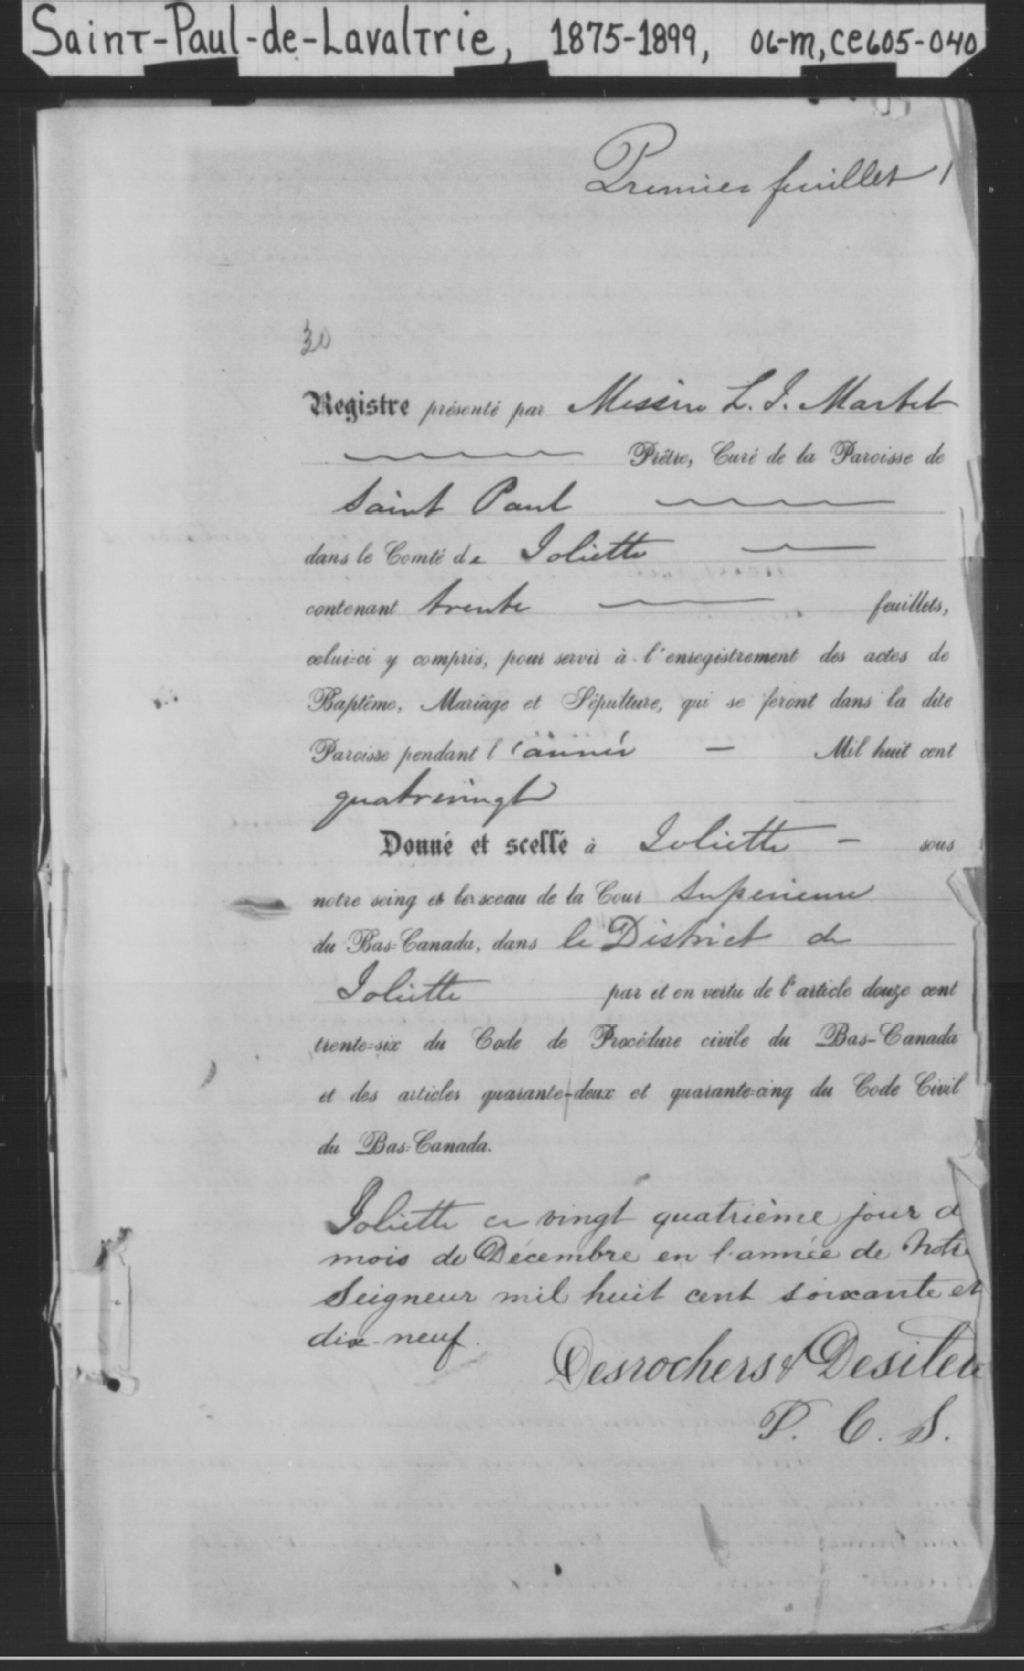 Saint-Paul-de-Lavaltrie, 1875-1899, 06-M, CE605-040
Premier feuillet 1
30
Registre présenté par Messire L. J. Martel
Prêtre, Curé de la Paroisse de
Saint Paul
dans le Comté de Joliette
contenant trente feuillets,
celui-ci y compris, pour servir à l'enregistrement des actes de
Baptême, Mariage et Sépulture, qui se feront dans la dite
Paroisse pendant l'année — Mil huit cent
quatrevingt
Donné et scellé à Joliette — sous
notre seing et le sceau de la Cour Superieure
du Bas-Canada, dans le District de
Joliette par et en vertu de l'article douze cent
trente-six du Code de Procédure civile du Bas-Canada
et des articles quarante-deux et quarante-cinq du Code Civil
du Bas-Canada.
Joliette ce vingt quatrième jour d
mois de Décembre en l'année de Notre
Seigneur mil huit cent soixante et
dix-neuf.
Desrochers & Desilet
P. C. S.